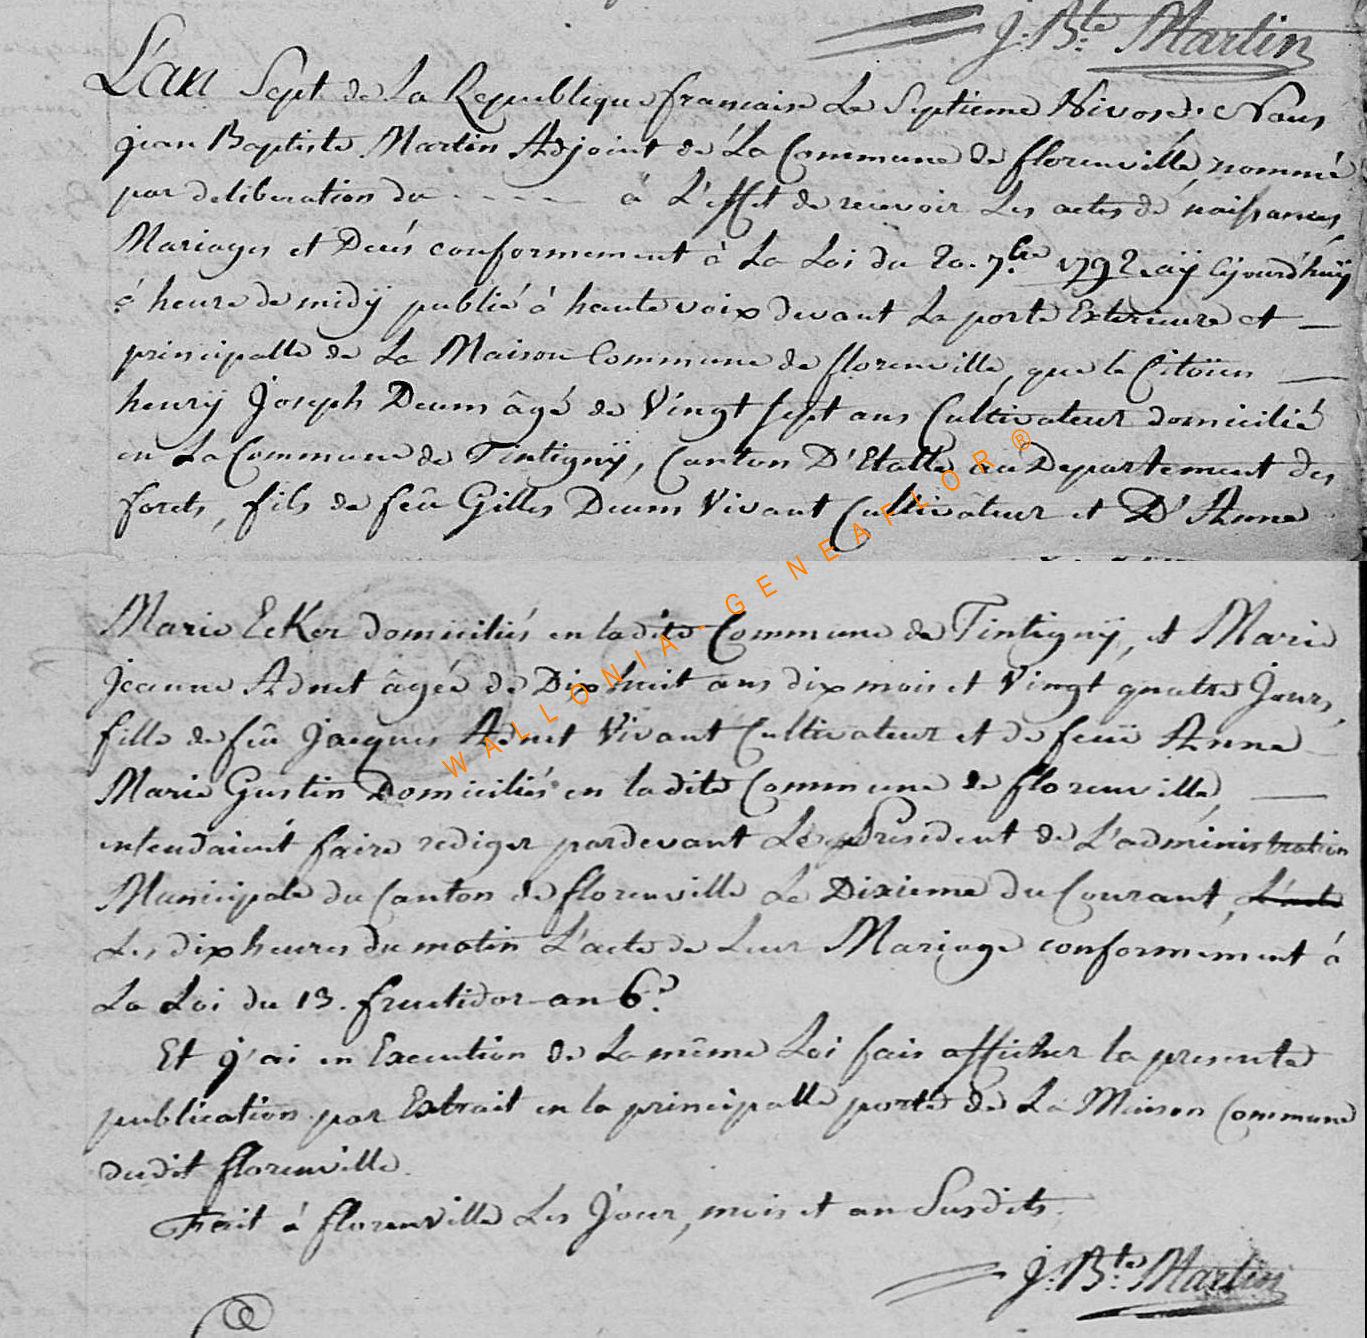 J. Bte Martin
L'an Sept de La Republique francaise Le Septieme Nivose. Nous
jean Baptiste Martin Adjoint de La Commune de florenville, nommé
par deliberation du - - - - - à L'effet de recevoir Les actes de naissances,
Mariages et Decés conformement à La Loi du 20. 7.bre 1792 aÿ Cÿourd'huÿ
à heure de midÿ publié à haute voix devant La porte Exterieure et —
principalle de La Maison Commune de florenville, que le Citoïen —
henrÿ Joseph Deum âgé de Vingt sept ans Cultivateur domicilié
en La Commune de Tintignÿ, Canton D'Etalle au Departement des
forets, fils de feû Gilles Deum Vivant Cultivateur et D'Anne
Marie EcKer domiciliés en ladite Commune de Tintignÿ, et Marie
Jeanne Adnet âgée de Dix huit ans dix mois et Vingt quatre Jours,
fille de feû Jacques Adnet Vivant Cultivateur et de feuë Anne
Marie Gustin Domiciliés en ladite Commune de florenville, —
entendaient faire rediger pardevant Le President de L'administration
Municipale du Canton de florenville Le Dixieme du Courant, L'acte
Les dix heures du matin L'acte de Leur Mariage conformément à
La Loi du 13. fructidor an 6.e
Et j'ai en Execution de La même Loi fais afficher la presente
publication par Extrait en la principalle porte de La Maison Commune
dudit florenville.
Fait à florenville Les Jour, mois et an Susdits.
J. Bte Martin
WALLONIA-GENEAFLOR®